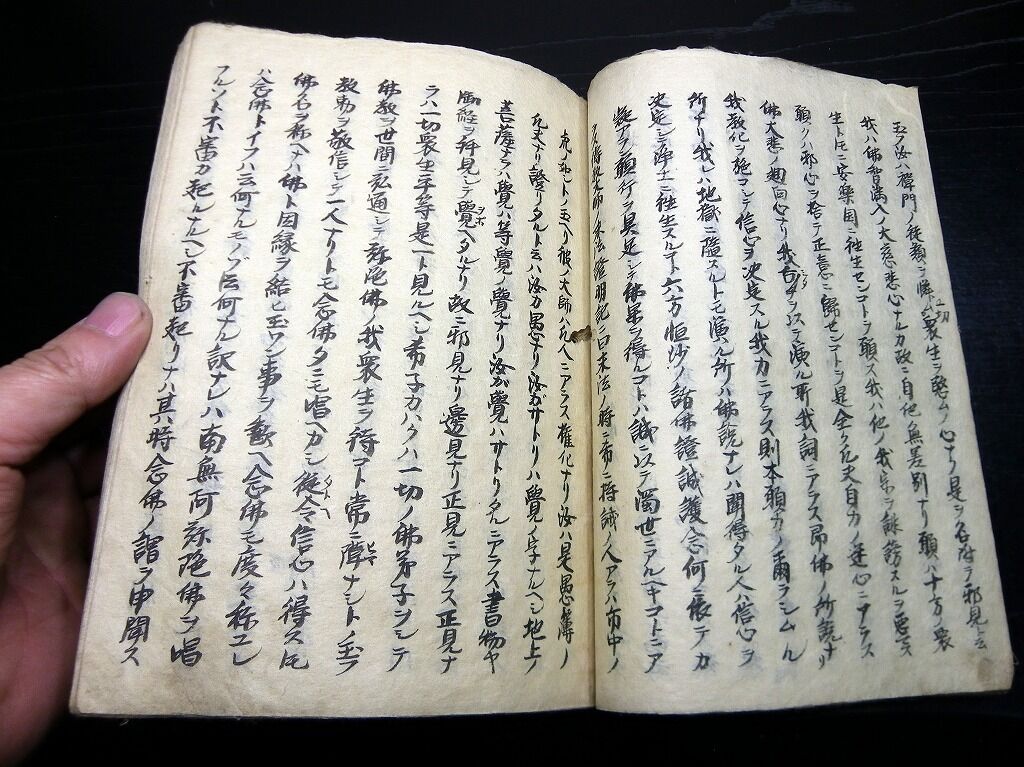 玉フ汝ハ禅門ノ従類ヲ隣ム衆生ヲ愍ムノ心ナリ是ヲ名存テ邪見ト云
一切
我ハ佛智満入ノ大慈悲心ナルカ故ニ自他無差別ナリ願ハ十方ノ衆
生トモニ安樂国ニ往生センコトヲ願ス我ハ他ノ我宗ヲ誹謗スルヲ悪マス
願クハ邪心ヲ捨テ正意ニ歸セントヲ是全ク凡夫自力ノ迷心ニアラス
佛大悲ノ廻向心ナリ我舌ヲ以テ演ル所我詞ニアラス即佛ノ所説ナリ
我教化ヲ施コシテ信心ヲ决定スル我力ニアラス則本願力ノ爾ラシムル
所ナリ我レハ地獄ニ墮スルトモ演ル所ハ佛説ナレハ聞得タル人ハ信心ヲ
决定シテ浄土ニ往生スルコト六方恒沙ノ諸佛證誠護念何ニ依テカ
疑アラン願行ヲ具足シテ佛果ヲ得ルコトハ誠ニ以テ濁世ニアルヘキコトニア
ラス傳教大師ノ末法燈明記ニ曰末法ノ時ニ希ニ持戒ノ人アラハ市中ノ
虎ノ如シトノ玉ヘリ彼ノ大師ハ凡人ニアラス権化ナリ汝ハ是愚薄ノ
凡夫ナリ證リタルト云ハ汝カ愚ナリ汝ガサトリハ覺ノ字ナルヘシ地上ノ
菩薩ナラハ覺ハ等覺ノ覺ナリ汝ガ覺ハサトリタルニアラス書物ヤ
御経ヲ拜見シテ覺ヘタルナリ故ニ邪見ナリ邊見ナリ正見ニアラス正見ナ
ラハ一切衆生平等是一ト見ルヘシ希子カハクハ一切ノ佛弟子ヲシテ
佛教ヲ世間ニ弘通シテ弥陀佛ノ我衆生ヲ待コト常ニ隣ナシトノ玉フ
教勅ヲ敬信シテ一人ナリトモ念佛タニモ唱ヘカシ従令信心ハ得ストモ
タトヘ
佛名ヲ称ヘナハ佛ト因縁ヲ結ヒ玉ワン事ヲ歡ヘ念佛モ度々称ユレ
ハ念佛トイフハ云何ナルモノソ云何ナル訳ナレハ南無阿弥陀佛ヲ唱
フルソト不審カ起ルナルヘシ不審起リナハ其時念佛ノ謂ヲ申聞ス